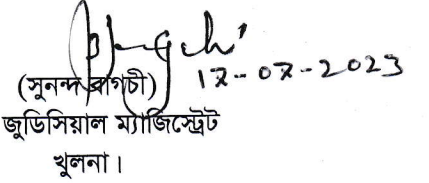 17-07-2023
(সুনন্দ বাগচী)
জুডিসিয়াল ম্যাজিস্ট্রেট
খুলনা।